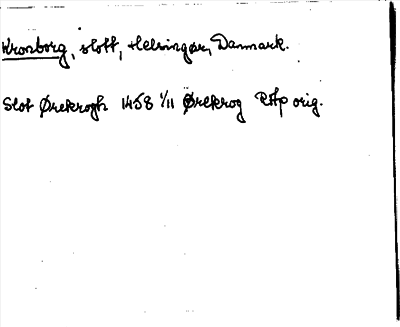 Kronborg, slott, Helsingør, Danmark.
Slot Ørekrogh 1458 1/11 Ørekrog RAp orig.